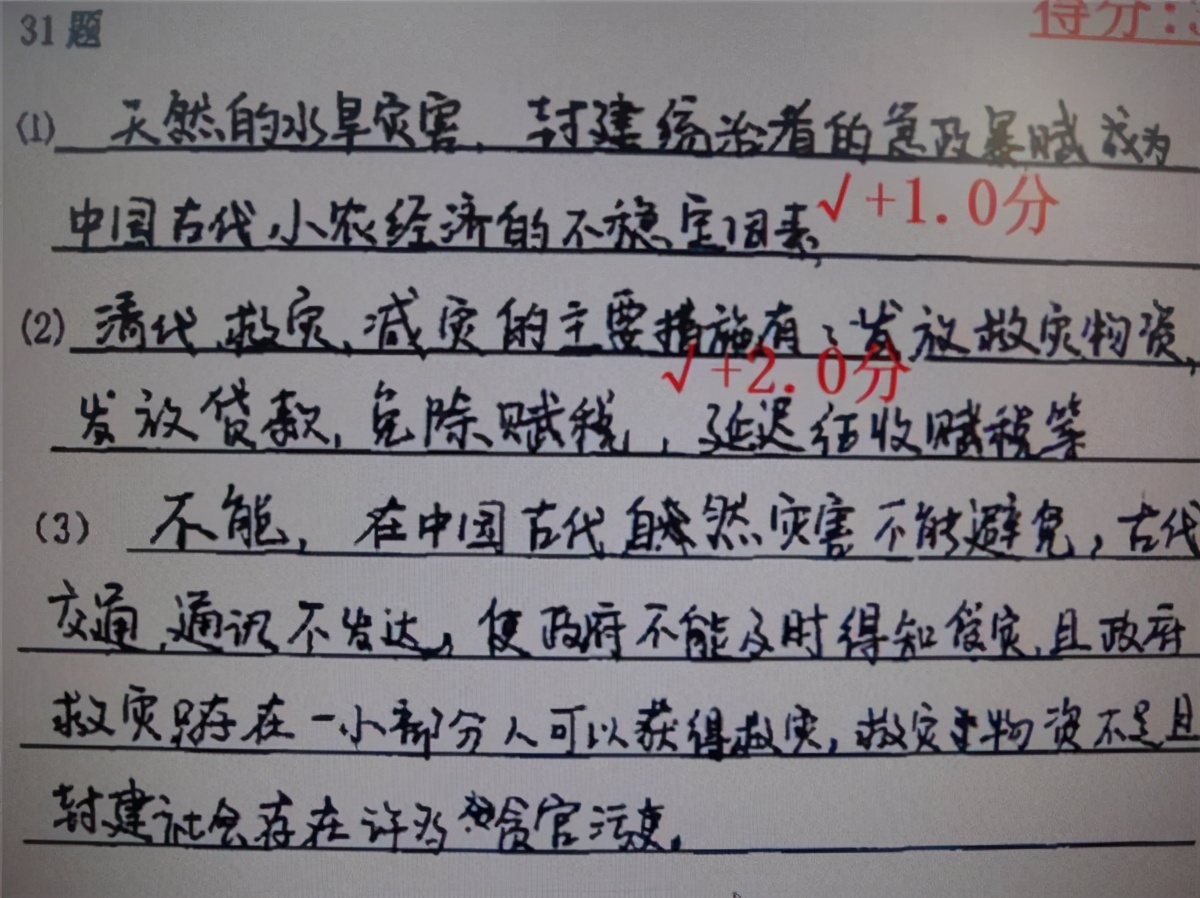 31题
得分:
(1) 天然的水旱灾害、封建统治者的急政暴赋成为
中国古代小农经济的不稳定因素,
√+1.0分
(2) 清代救灾、减灾的主要措施有:发放救灾物资,
√+2.0分
发放贷款,免除赋税,延迟征收赋税等
(3) 不能,在中国古代自然灾害不能避免,古代
交通、通讯不发达,使政府不能及时得知灾,且政府
救灾只存在一小部分人可以获得救灾,救灾物资不足且
封建社会存在许多贪官污吏.